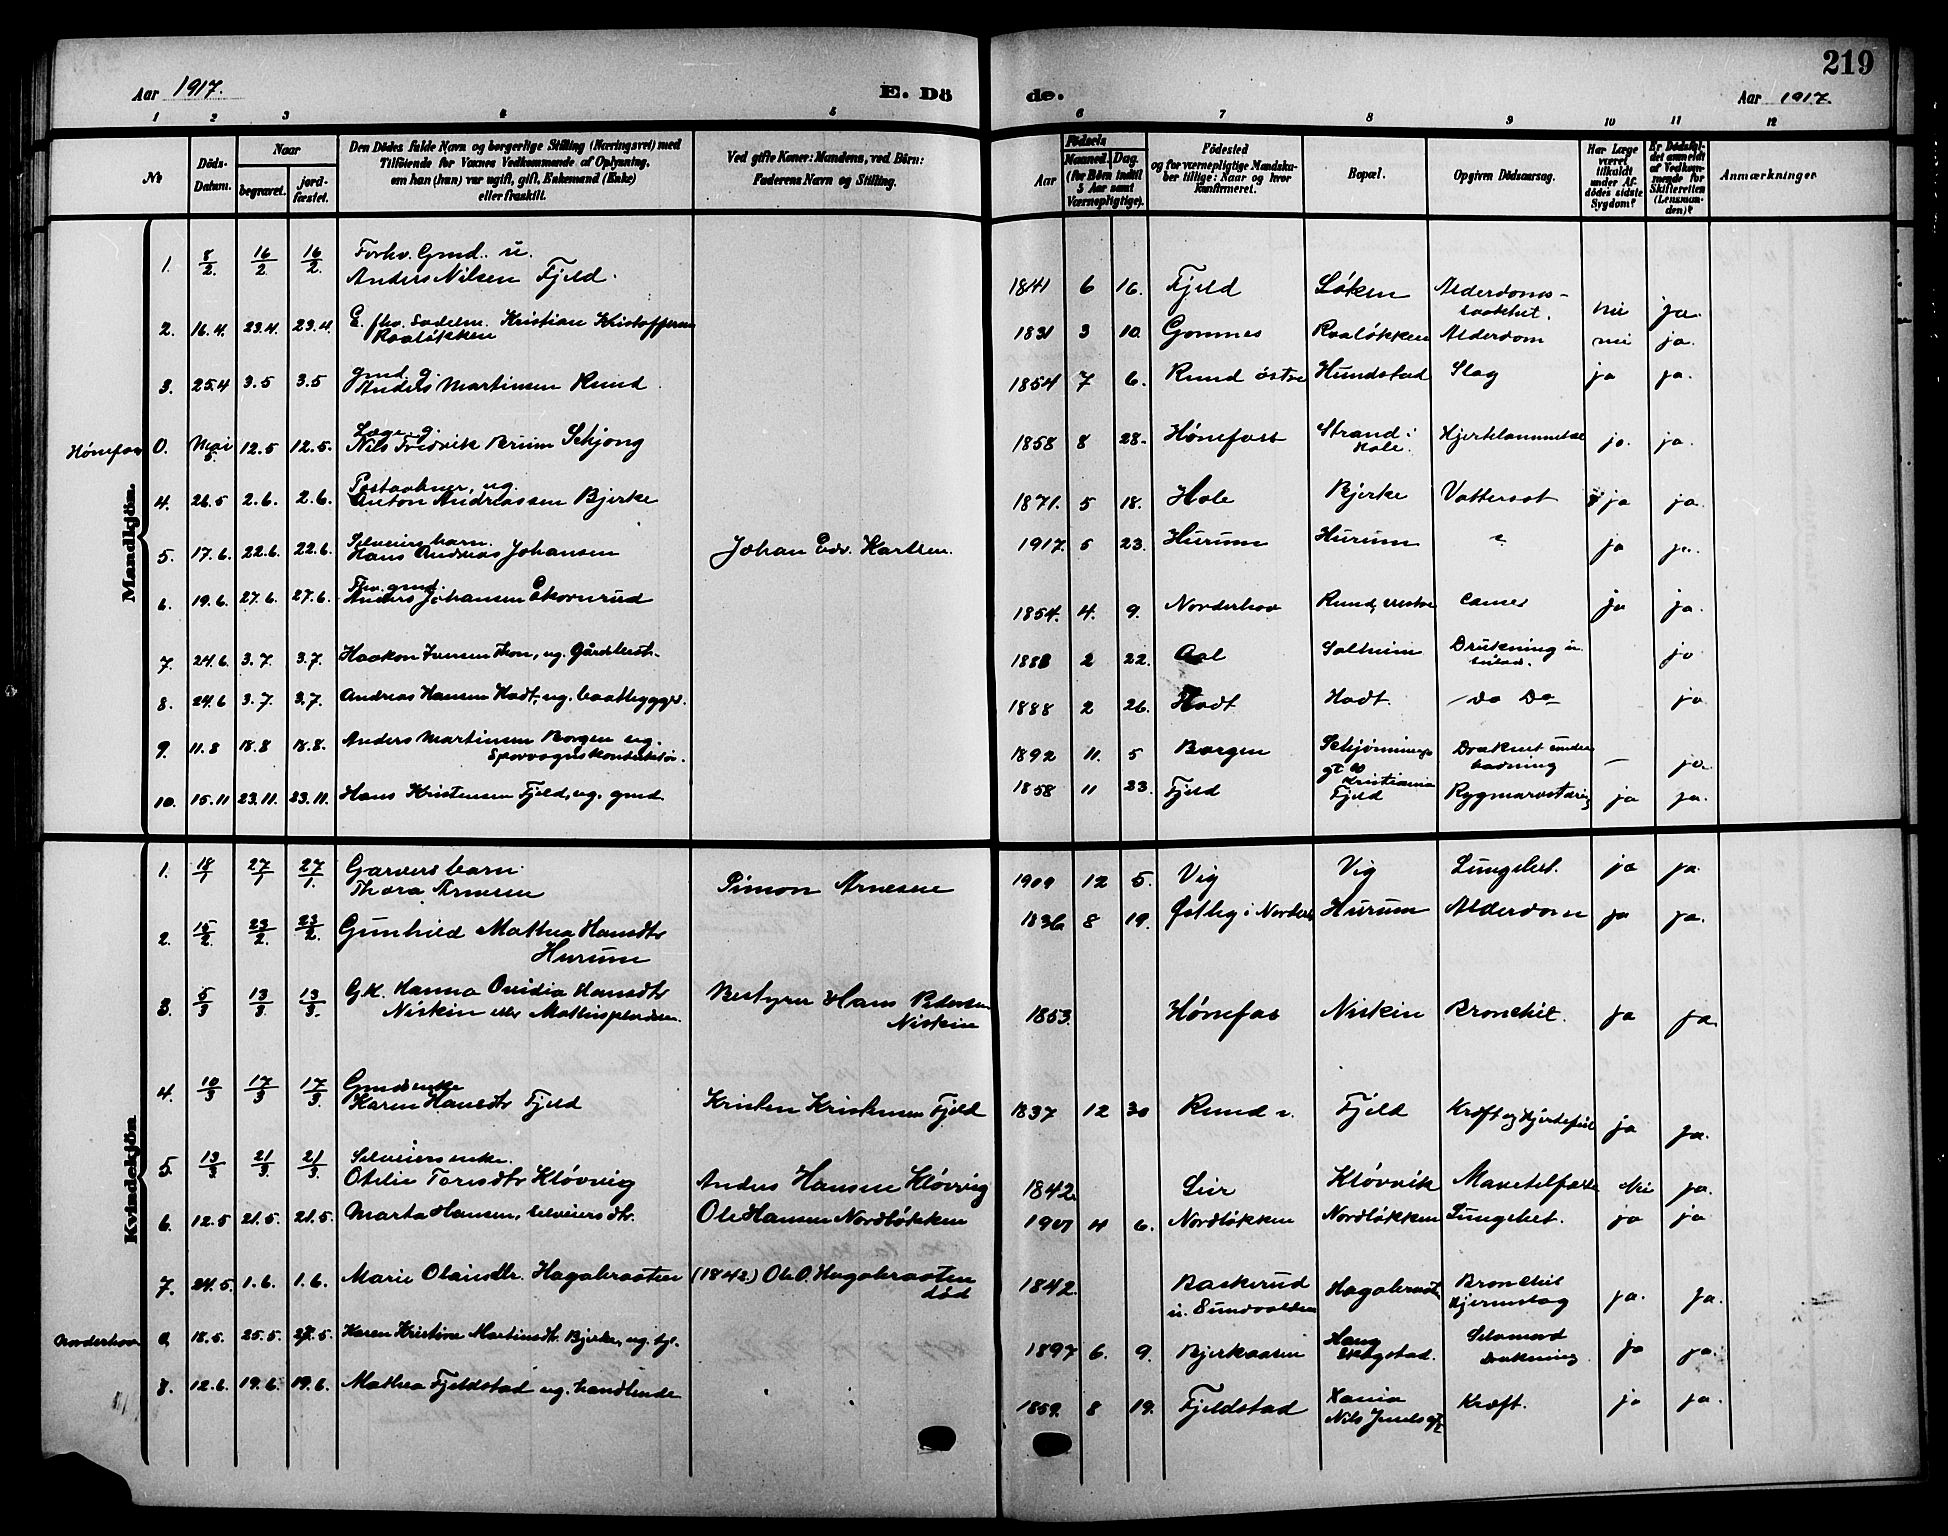 219
Aar 1917.
E. Dö
de.
Aar 1917.
1 2 3 4 5 6 7 8 9 10 11 12
№
Döds-
Datum.
Naar
begravet.
jord-
fæstet.
Den Dödes fulde Navn og borgerlige Stilling (Næringsvei) med
Tilföiende for Voxnes Vedkommende af Oplysning,
om han (hun) var ugift, gift, Enkemand (Enke)
eller fraskilt.
Ved gifte Koner: Mandens, ved Börn:
Faderens Navn og Stilling.
Aar
Födsels
Maaned. Dag.
(for Börn indtil
5 Aar samt
Værnepligtige).
Födested
og for værnepligtige Mandska-
ber tillige: Naar og hvor
konfirmeret.
Bopæl.
Opgiven Dödsaarsag.
Har Læge
været
tilkaldt
under Af-
dödes sidste
Sygdom?
Er Dödsfal-
det anmeldt
af Vedkom-
mende for
Skifteretten
(Lensman-
den)?
Anmærkninger
Mandkjön.
1. 8/2 16/2 16/2 Forhv. Gmd. u.
Anders Nilsen Fjeld. 1841 6 16. Fjeld Løken Alderdoms-
nei ja.
2. 16.4. 23.4. 23.4. E. fhv. Sadelm. Kristian Kristoffersen
Raaløkken 1831 3 10. Gomnes Raaløkken Alderdom nei ja.
3. 25.4 3.5 3.5 gmd. g.
Anders Martinsen Rund 1854 7 6. Rund østre Hundstad Slag ja ja.
Hønefos 0. Mai 5. 12.5 12.5. Læge. g.
Nils Fredrik Bruun Schjong 1858 8 28. Hønefoss Strand i
Hole. ja. ja.
4. 26.5 2.6. 2.6. Postaabner, ug.
Anton Andreassen Bjerke 1871. 5 18. Hole Bjerke Vattersot ja ja.
5. 17.6. 22.6. 22.6. Selveiersbarn.
Hans Andreas Johansen Johan Edv. 1917. 5 23. Hurum Hurum ja ja.
6. 19.6. 27.6. 27.6. Fhv. gmd.
Anders Johansen Ekornrud 1854. 4. 9. Norderhov Rund, vestre Cancer ja ja.
7. 24.6. 3.7. 3.7. Haakon Iversen Thon, ug. 1888 2 22. Aal Solheim Drukning ja
8. 24.6 3.7. 3.7. Andreas Hansen Hodt, ug. baatbygger. 1888 2 26. Hodt Hodt. – Do Do ja
9. 11.8 18.8 18.8. Anders Martinsen Borgen ug.
Sporvognskonduktør. 1892 11. 5 Borgen Schjønnings
gt 
Kristiania Druknet under
badning – ja.
10. 15.11 23.11. 23.11. Hans Kristensen Fjeld, ug. gmd. 1858 11 23. Fjeld Fjeld Rygmarvstæring ja ja.
Kvindekjön
1. 18/1 27/1 27/1. Garversbarn.
Thora Arnesen Simon Arnesen 1909 12 5. Vig Vig Lungebet. ja ja.
2. 15/2 23/2 23/2. Gunhild Mathea Hansdtr
Hurum 1836 8 19. Østby i Norder. Hurum Alderdom ja ja.
3. 5/3 13/3 13/3 G.K. Hanna Ovidia Hansdtr
Niskin eller Mathisplassen. Bestyrer Hans Pedersen
Niskin 1853. Hønefos Niskin Bronchit. ja ja.
4. 10/3 17/3 17/3. Gmdsenke
Karen Hansdtr Fjeld Kristen Kristensen Fjeld 1837 12 30 Rund Fjeld Kræft og Hjertefeil ja ja.
5. 13/3 21/3 21/3. Selveiersenke.
Otelie Torisdtr Kløvvig Anders Hansen Kløvvig 1842. Lier Kløvvik Mavetilfælde Nei ja.
6. 12.5 21.5. 21.5. Marta Hansen, selveiersdtr. Ole Hansen Nordløkken 1901 4 6. Nordløkken Nordløkken Lungebet. ja ja
7. 24.5. 1.6. 1.6. Marie Olausdtr. Hagabraaten (1842.) Ole O. Hagabraaten
død 1842. Baskerud
u. Sundvolden Hagabraaten Bronchit
Hjerneslag ja. ja.
Norderhov 0. 18.5. 25.5. 25.5. Karen Kristine Martinsdtr. Bjerke, ug. tj. 1897 6. 9. Bjerkaasen Haug
Skogstad. Selvmord
Drukning ja ja.
8. 12.6. 19.6. 19.6. Mathea Fjeldstad ug. handlende 1859. 8 19. Fjeldstad Xania
Nils Juels gt Kræft. ja ja.